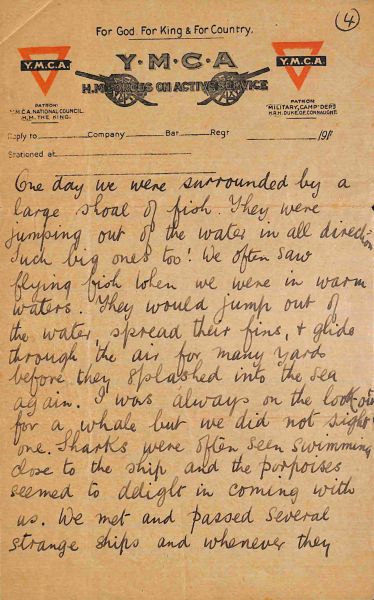 For God. For King & For Country.
(4)
Y.M.C.A.
Y·M·C·A
Y.M.C.A.
H.M. FORCES ON ACTIVE SERVICE
PATRON
Y.M.C.A. NATIONAL COUNCIL.
H.M. THE KING.
PATRON
"MILITARY CAMP" DEPT
H.R.H. DUKE OF CONNAUGHT.
Reply to Company Bat Regt 191
Stationed at
One day we were surrounded by a
large shoal of fish. They were
jumping out of the water in all direction
Such big ones too! We often saw
flying fish when we were in warm
waters. They would jump out of
the water, spread their fins, & glide
through the air for many yards
before they splashed into the sea
again. I was always on the look-out
for a whale but we did not sight
one. Sharks were often seen swimming
close to the ship and the porpoises
seemed to delight in coming with
us. We met and passed several
strange ships and whenever they